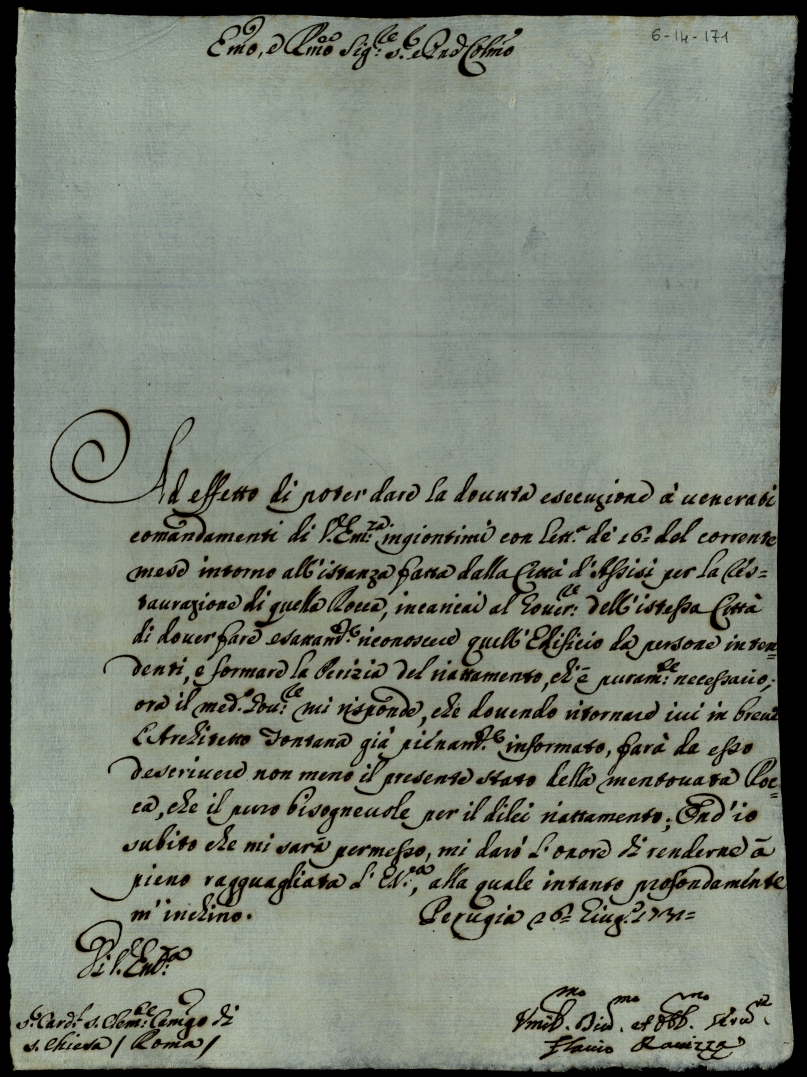 6-14-171
Emo, e Rmo Sig.re S.r e Pne Colmo
Ad effetto di poter dare la douuta esecuzione à uenerati
comandamenti di V. Em.za ingiontimi con lett.a de 16 del corrente
mese intorno all'istanza fatta dalla Città d'Assisi per la res=
taurazione di quella Rocca, incaricai al Gouer.re dell'istessa Città
di douer fare esattam.te riconoscere quell'Edificio da persone inten=
denti, e formare la Perizia del riattamento, ch'è puram.te necessario;
ora il med.o Gou.re mi risponde, che douendo ritornare iui in breue
l'Architetto Fontana già pienam.te informato, farà da esso
descriuere non meno il presente stato della mentouata Roc=
ca, che il puro bisogneuole per il dilei riattamento; Ond'io
subito che mi sarà permesso, mi darò l'onore di renderne à
pieno ragguagliata l'E.V.ra, alla quale intanto profondamente
m'inchino. Perugia 26 Giug.o 1731=
Di V. Em.za
S.r Card.l S. Clem.te Camgo di
S. Chiesa / Roma /
Umil.mo Diu.mo et Obb.mo Seru.re
Flauio Rauizza